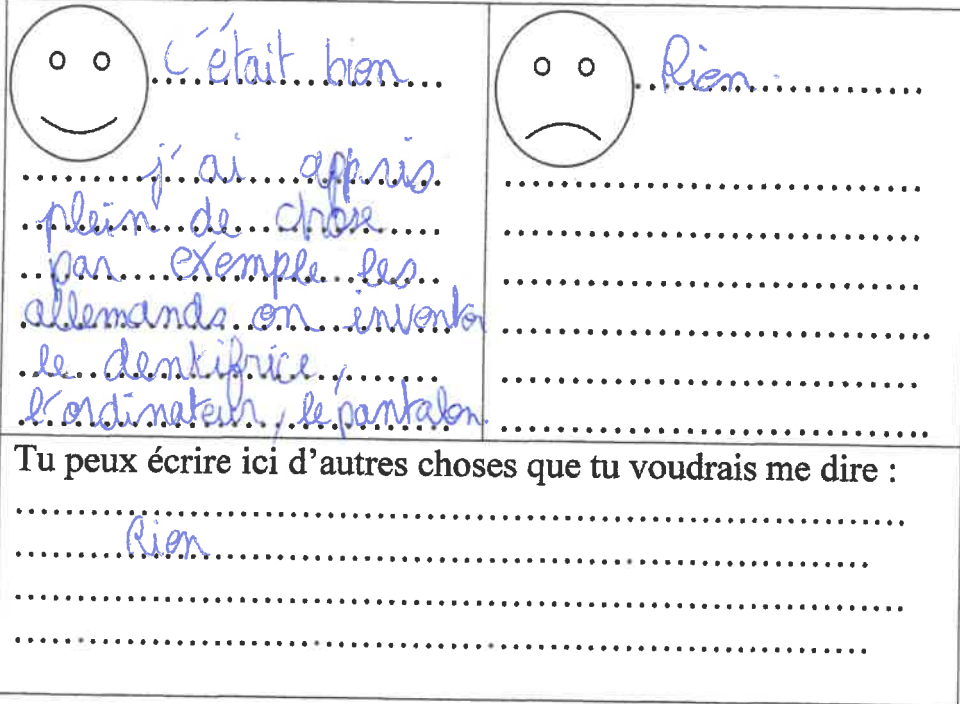 C'était bien
j'ai appris
plein de chose
par exemple les
allemands on inventer
le dentifrice,
l'ordinateur, le pantalon.
Rien.
Tu peux écrire ici d'autres choses que tu voudrais me dire :
Rien